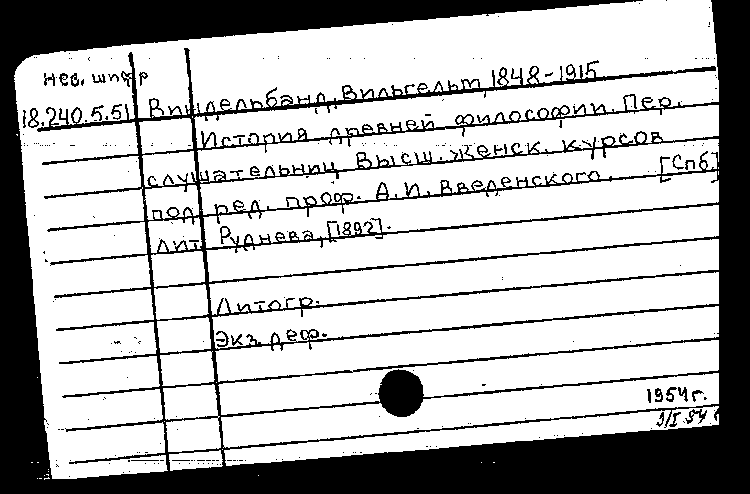 нев. шифр
18.240.5.51 Виндельбанд, Вильгельм, 1848-1915
История древней философии. Пер.
слушательниц Высш. женск. курсов
под ред. проф. А.И. Введенского. [Спб.]
лит. Руднева, [1892].
Литогр.
Экз. деф.
1954 г.
9/I 54